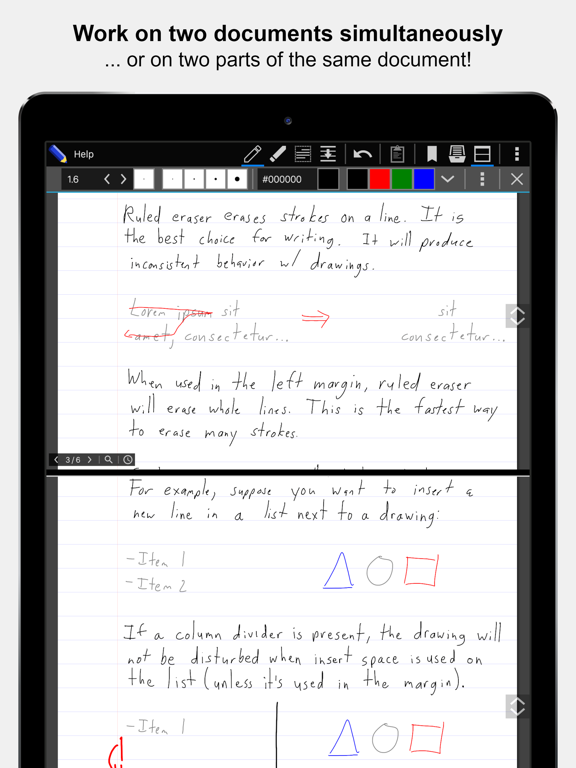 Work on two documents simultaneously
... or on two parts of the same document!
Help
1.6
#000000
Ruled eraser erases strokes on a line. It is
the best choice for writing. It will produce
inconsistent behavior w/ drawings.
Lorem ipsum sit
amet, consectetur...
sit
consectetur...
When used in the left margin, ruled eraser
will erase whole lines. This is the fastest way
to erase many strokes.
3/6
For example, suppose you want to insert a
new line in a list next to a drawing:
-Item 1
-Item 2
If a column divider is present, the drawing will
not be disturbed when insert space is used on
the list (unless it's used in the margin).
-Item 1